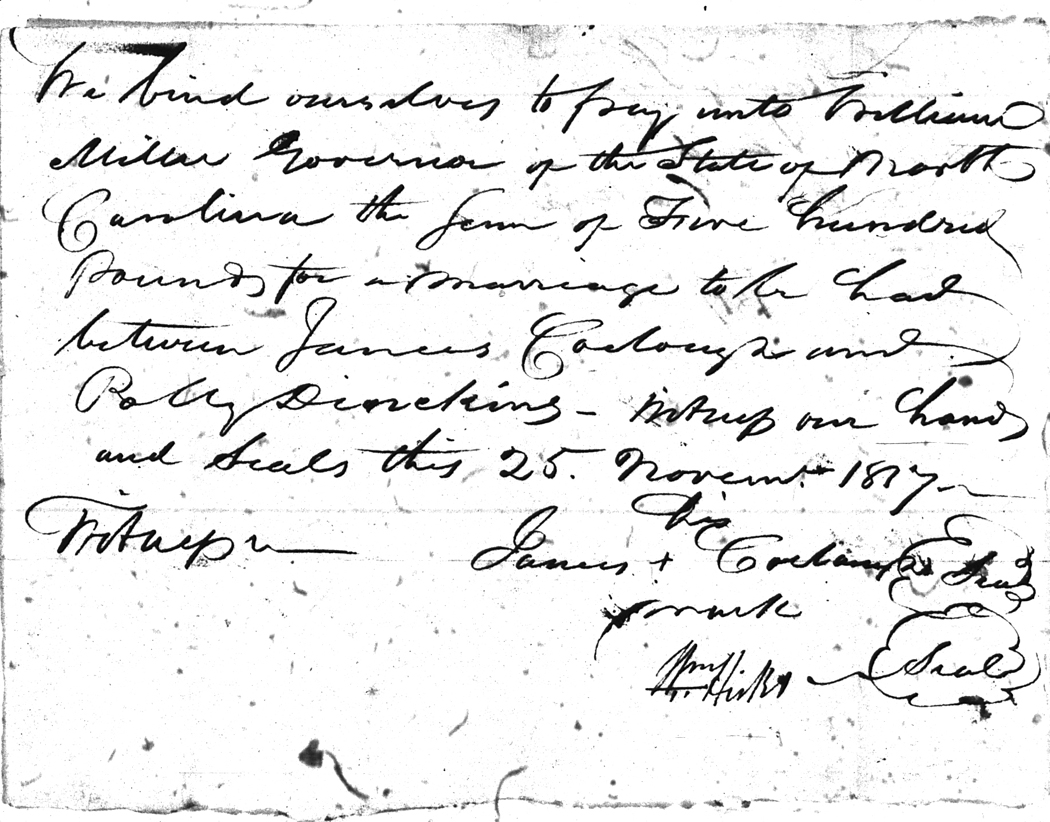 We bind ourselves to pay unto William
Miller Governor of the State of North
Carolina the Sum of Five hundred
Pounds for a marriage to be had
between James Coclough and
Polly Dinckins – Witness our hands
and Seals this 25. Novemr. 1817
his
Witness
James + Seal
mark
Wm Hicks Seal